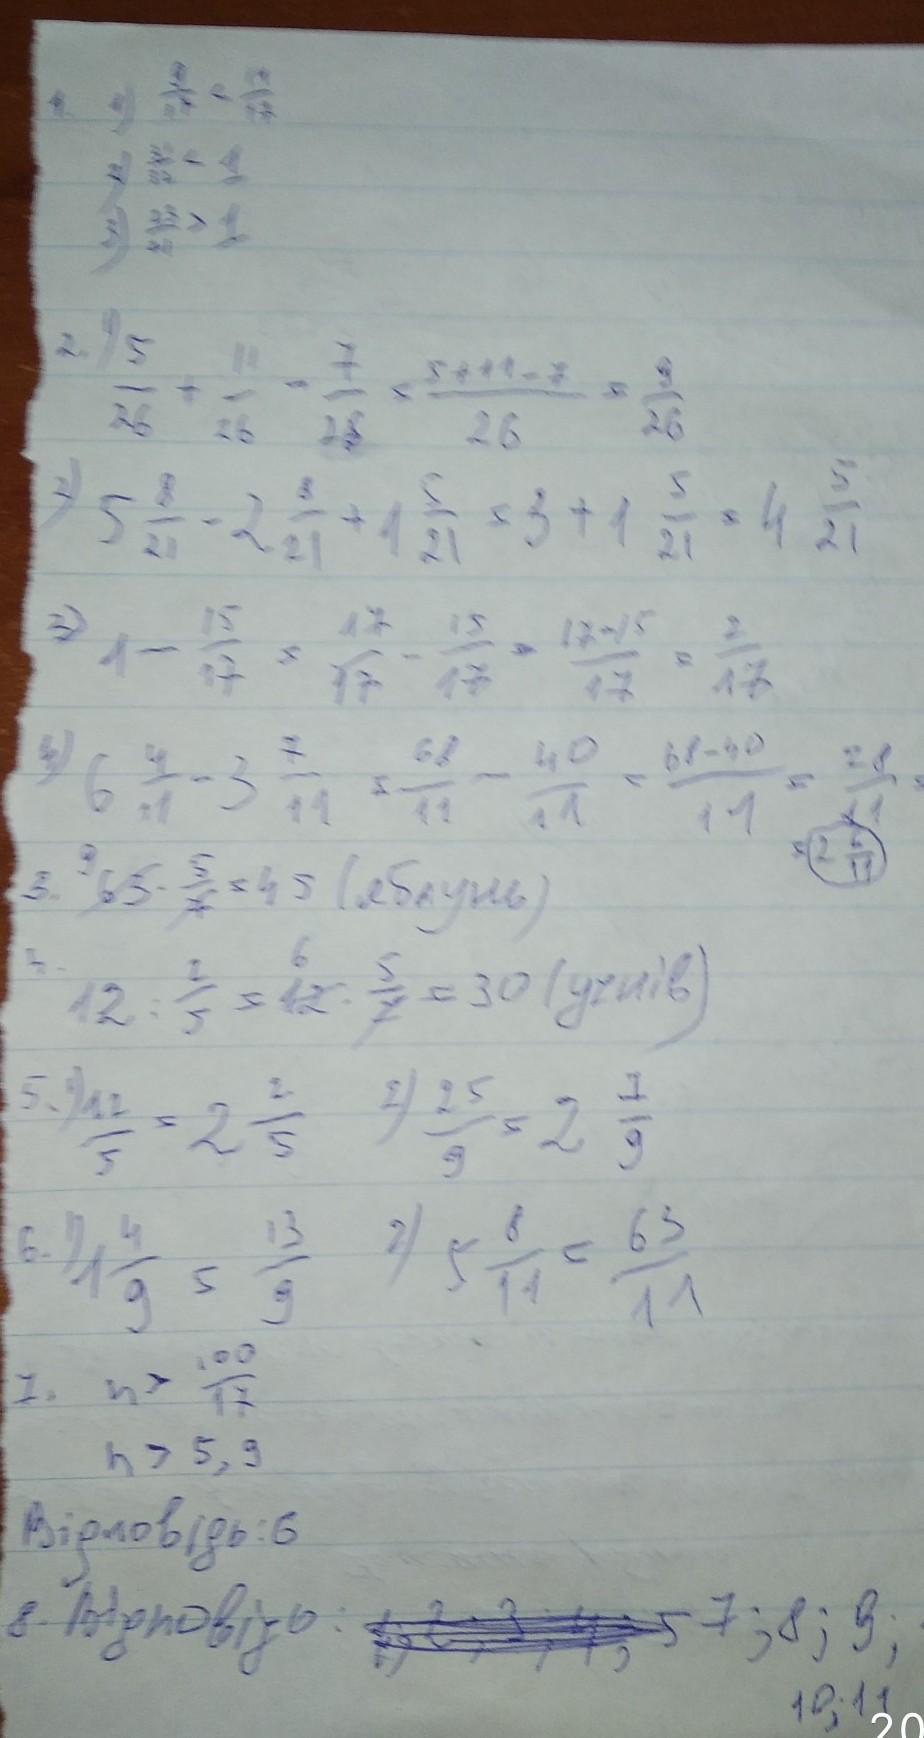 2. 1) 5/26 + 11/26 - 7/26 = 5+11-7/26 = 9/26
5 8/21 - 2 8/21 + 1 5/21 = 3 + 1 5/21 = 4 5/21
3) 1 - 15/17 = 17/17 - 15/17 = 17-15/17 = 2/17
4) 6 - 3 7/11 = 68/11 - 40/11 = 68-40/11 = 28/11 =
= 2 6/11
3. 9 65 · 5/7 = 45 (яблунь)
12 : 2/5 = 6 12 · 5/2 = 30 (учнів)
5. 1) 12/5 = 2 2/5 2) 25/9 = 2 7/9
6. 1) 1 4/9 = 13/9 2) 5 8/11 = 63/11
7. n > 100/17
n > 5,9
Відповідь: 6
8. Відповідь: 7; 8; 9;
10; 11
20